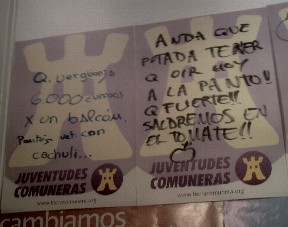 Q. verguenza
6.000 euros
x un balcón.
Pantoja vet. con
cachuli...
JUVENTUDES
COMUNERAS
ANDA QUE
POTADA TENER
Q OIR HOY
A LA PANTO!!
Q FUERTE!!
SALDREMOS EN
EL TOMATE!!
JUVENTUDES
COMUNERAS
cambiamos